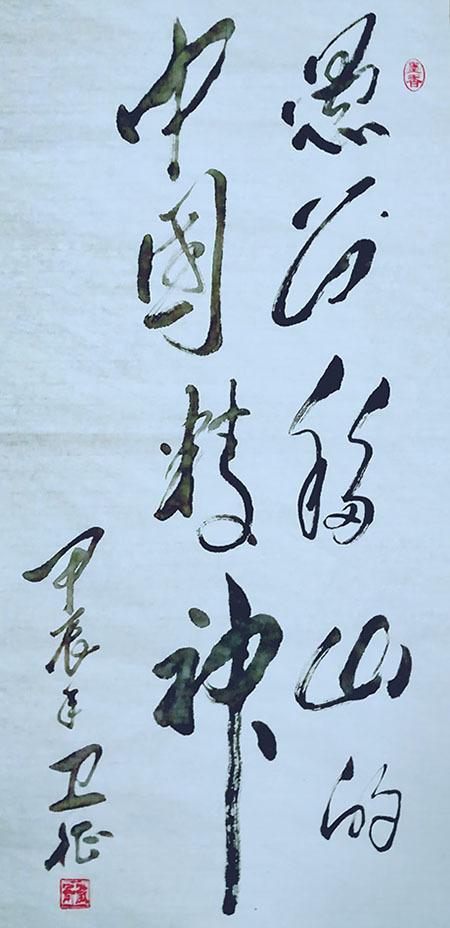 愚公移山的
中国精神
甲辰年
卫征
墨香